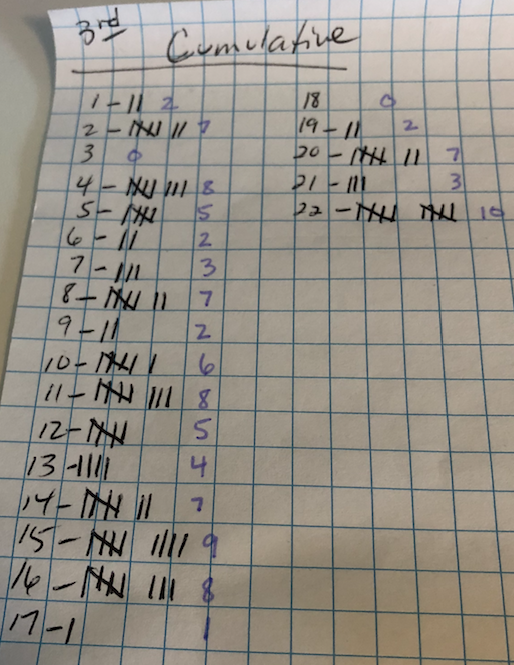 3rd Cumulative
1 - || 2
2 - 𝍸 || 7
3 0
4 - 𝍸 ||| 8
5 - 𝍸 5
6 - || 2
7 - ||| 3
8 - 𝍸 || 7
9 - || 2
10 - 𝍸 | 6
11 - 𝍸 ||| 8
12 - 𝍸 5
13 - |||| 4
14 - 𝍸 || 7
15 - 𝍸 |||| 9
16 - 𝍸 ||| 8
17 - | 1
18 0
19 - || 2
20 - 𝍸 || 7
21 - ||| 3
22 - 𝍸 𝍸 10